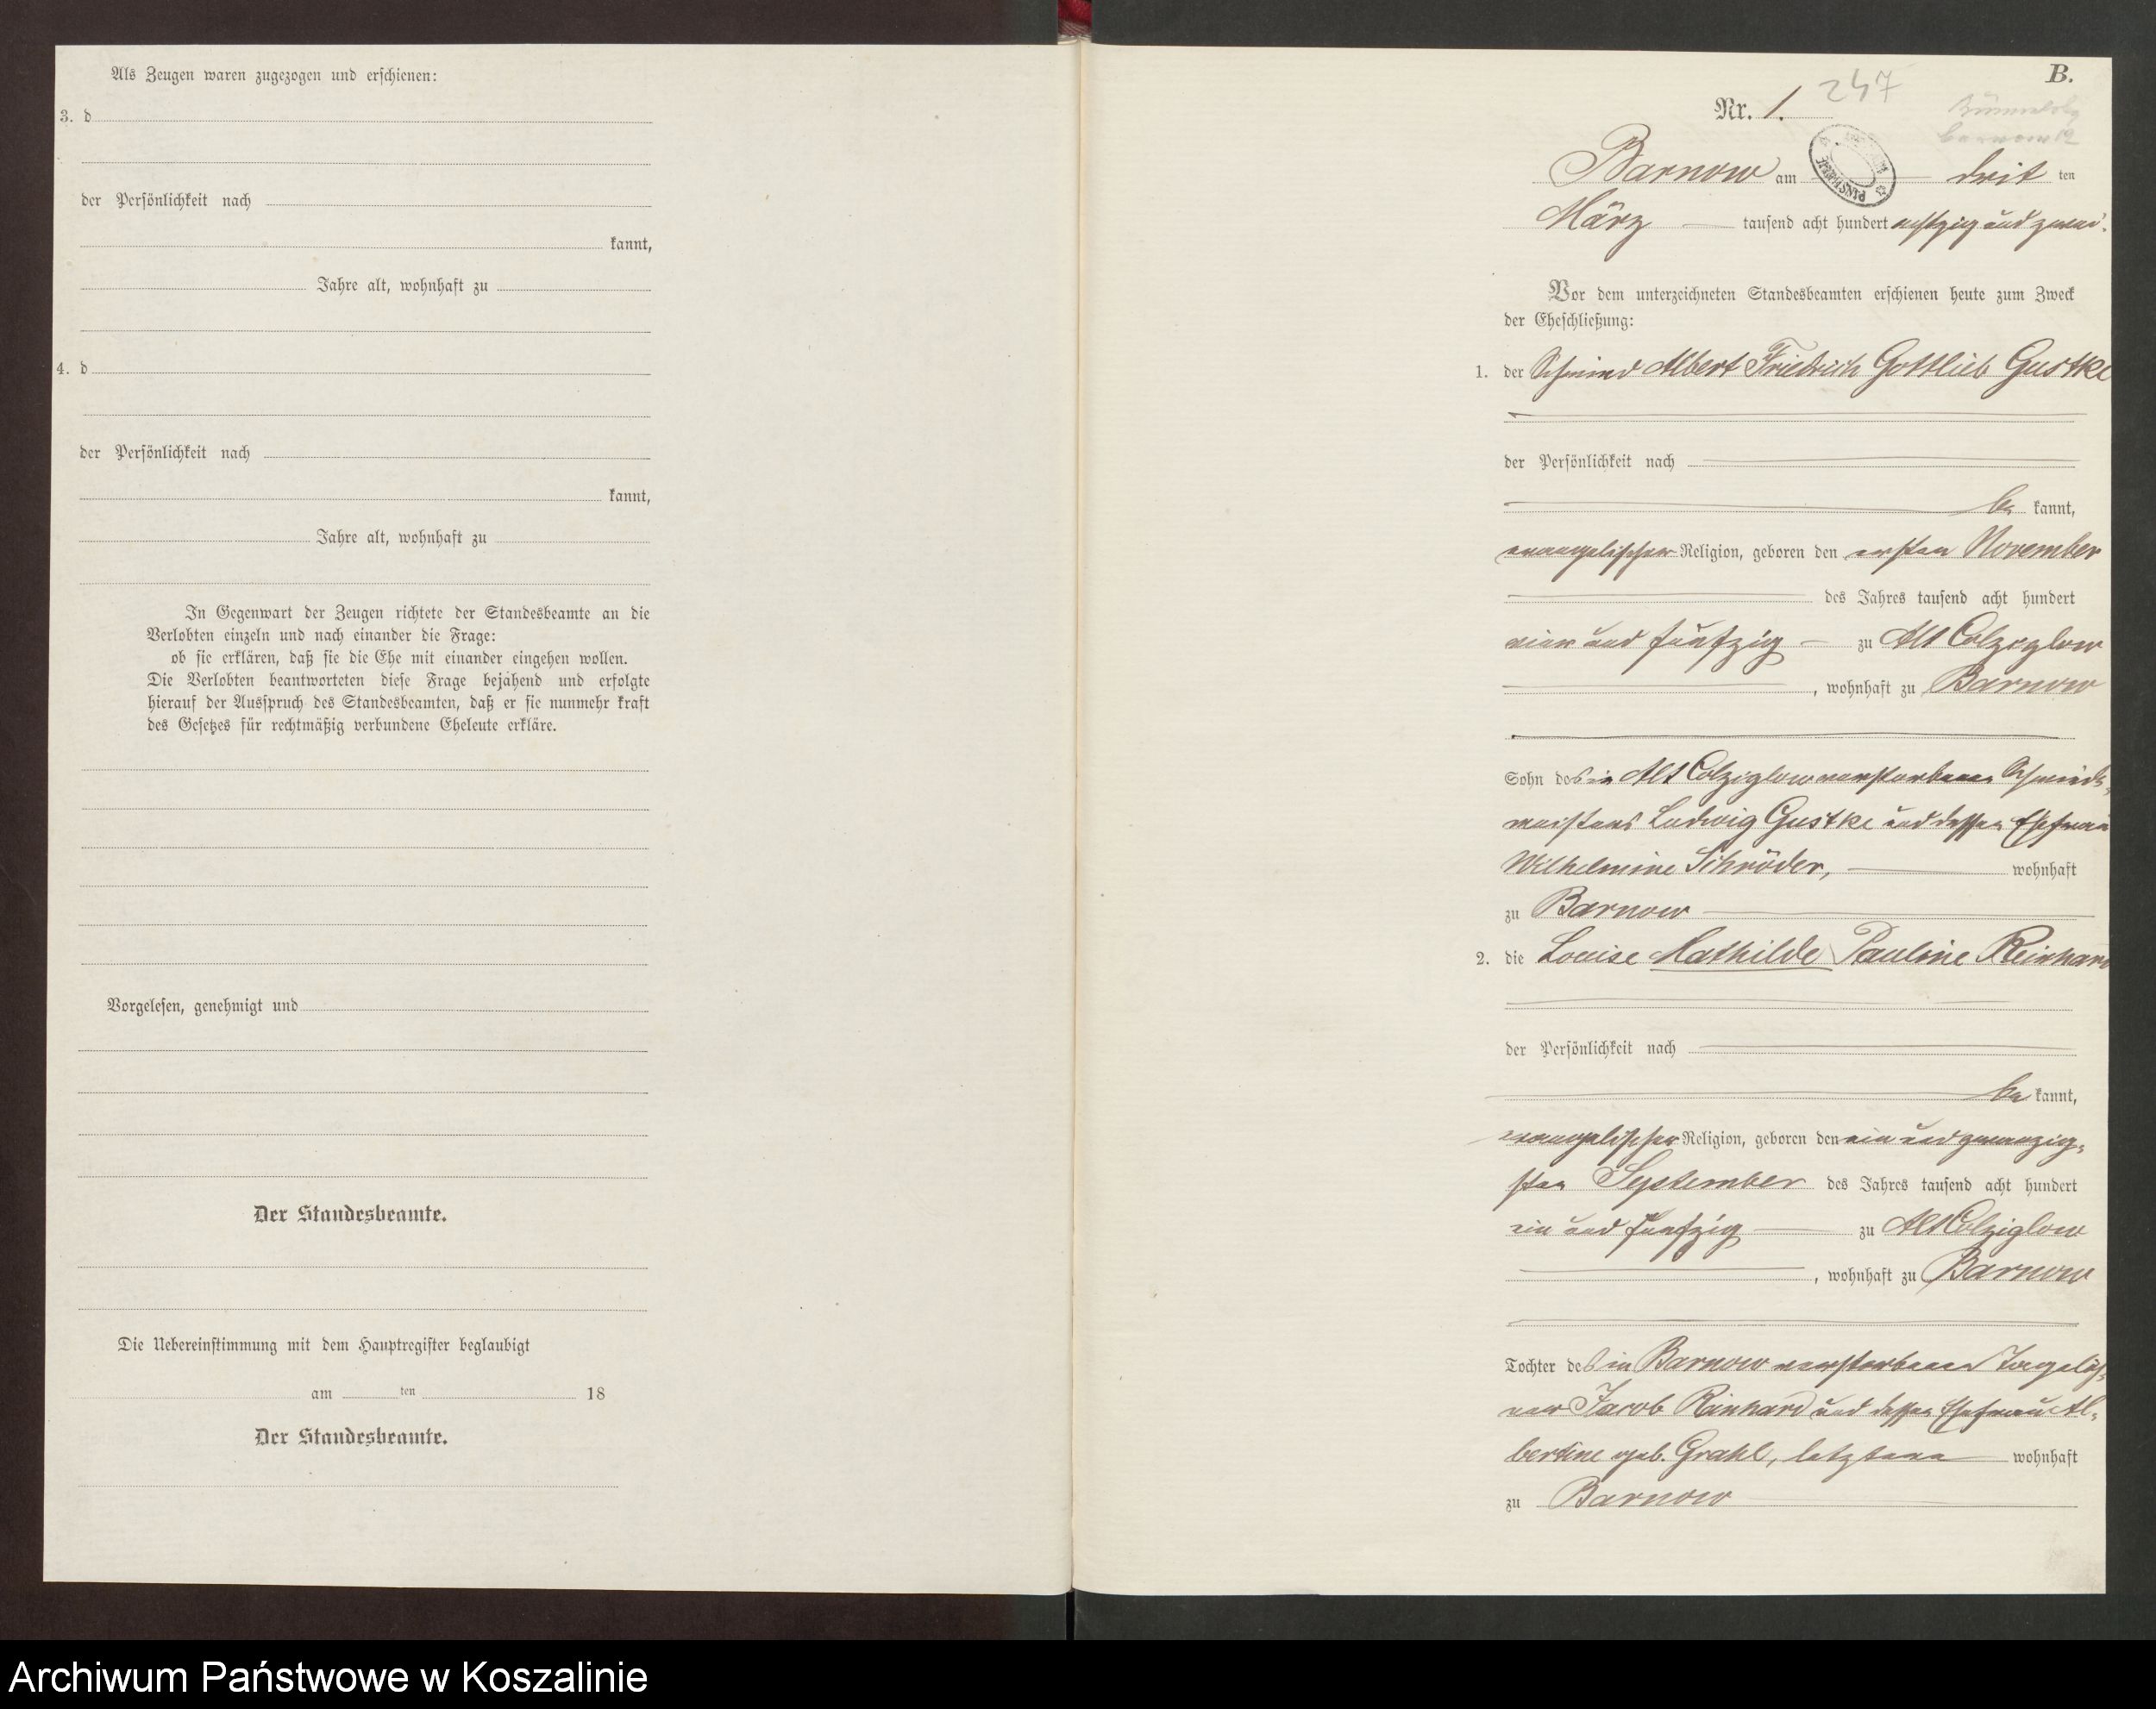 Als Zeugen waren zugezogen und erschienen:
3. d
der Persönlichkeit nach
kannt,
Jahre alt, wohnhaft zu
4. d
der Persönlichkeit nach
kannt,
Jahre alt, wohnhaft zu
In Gegenwart der Zeugen richtete der Standesbeamte an die
Verlobten einzeln und nach einander die Frage:
ob sie erklären, daß sie die Ehe mit einander eingehen wollen.
Die Verlobten beantworteten diese Frage bejahend und erfolgte
hierauf der Ausspruch des Standesbeamten, daß er sie nunmehr kraft
des Gesetzes für rechtmäßig verbundene Eheleute erkläre.
Vorgelesen, genehmigt und
Der Standesbeamte.
Die Uebereinstimmung mit dem Hauptregister beglaubigt
am ten 18
Der Standesbeamte.
B.
247
Nr. 1.
Barnow am drit ten
März tausend acht hundert achtzig und zwei.
Vor dem unterzeichneten Standesbeamten erschienen heute zum Zweck
der Eheschließung:
1. der Schmied Albert Friedrich Gottlieb Gustke
der Persönlichkeit nach
be kannt,
evangelischer Religion, geboren den ersten November
des Jahres tausend acht hundert
vier und fünfzig zu Alt Colziglow
, wohnhaft zu Barnow
Sohn des in Alt Colziglow verstorbenen Schmiede-
meisters Ludwig Gustke und dessen Ehefrau
Wilhelmine Schröder, wohnhaft
zu Barnow
2. die Louise Mathilde Pauline Reinhard
der Persönlichkeit nach
be kannt,
evangelischer Religion, geboren den ein und zwanzig-
sten September des Jahres tausend acht hundert
ein und fünfzig zu Alt Colziglow
, wohnhaft zu Barnow
Tochter des in Barnow verstorbenen Tagelöh-
ner Jacob Reinhard und dessen Ehefrau Al-
bertine geb. Grahl, letztere wohnhaft
zu Barnow
Archiwum Państwowe w Koszalinie